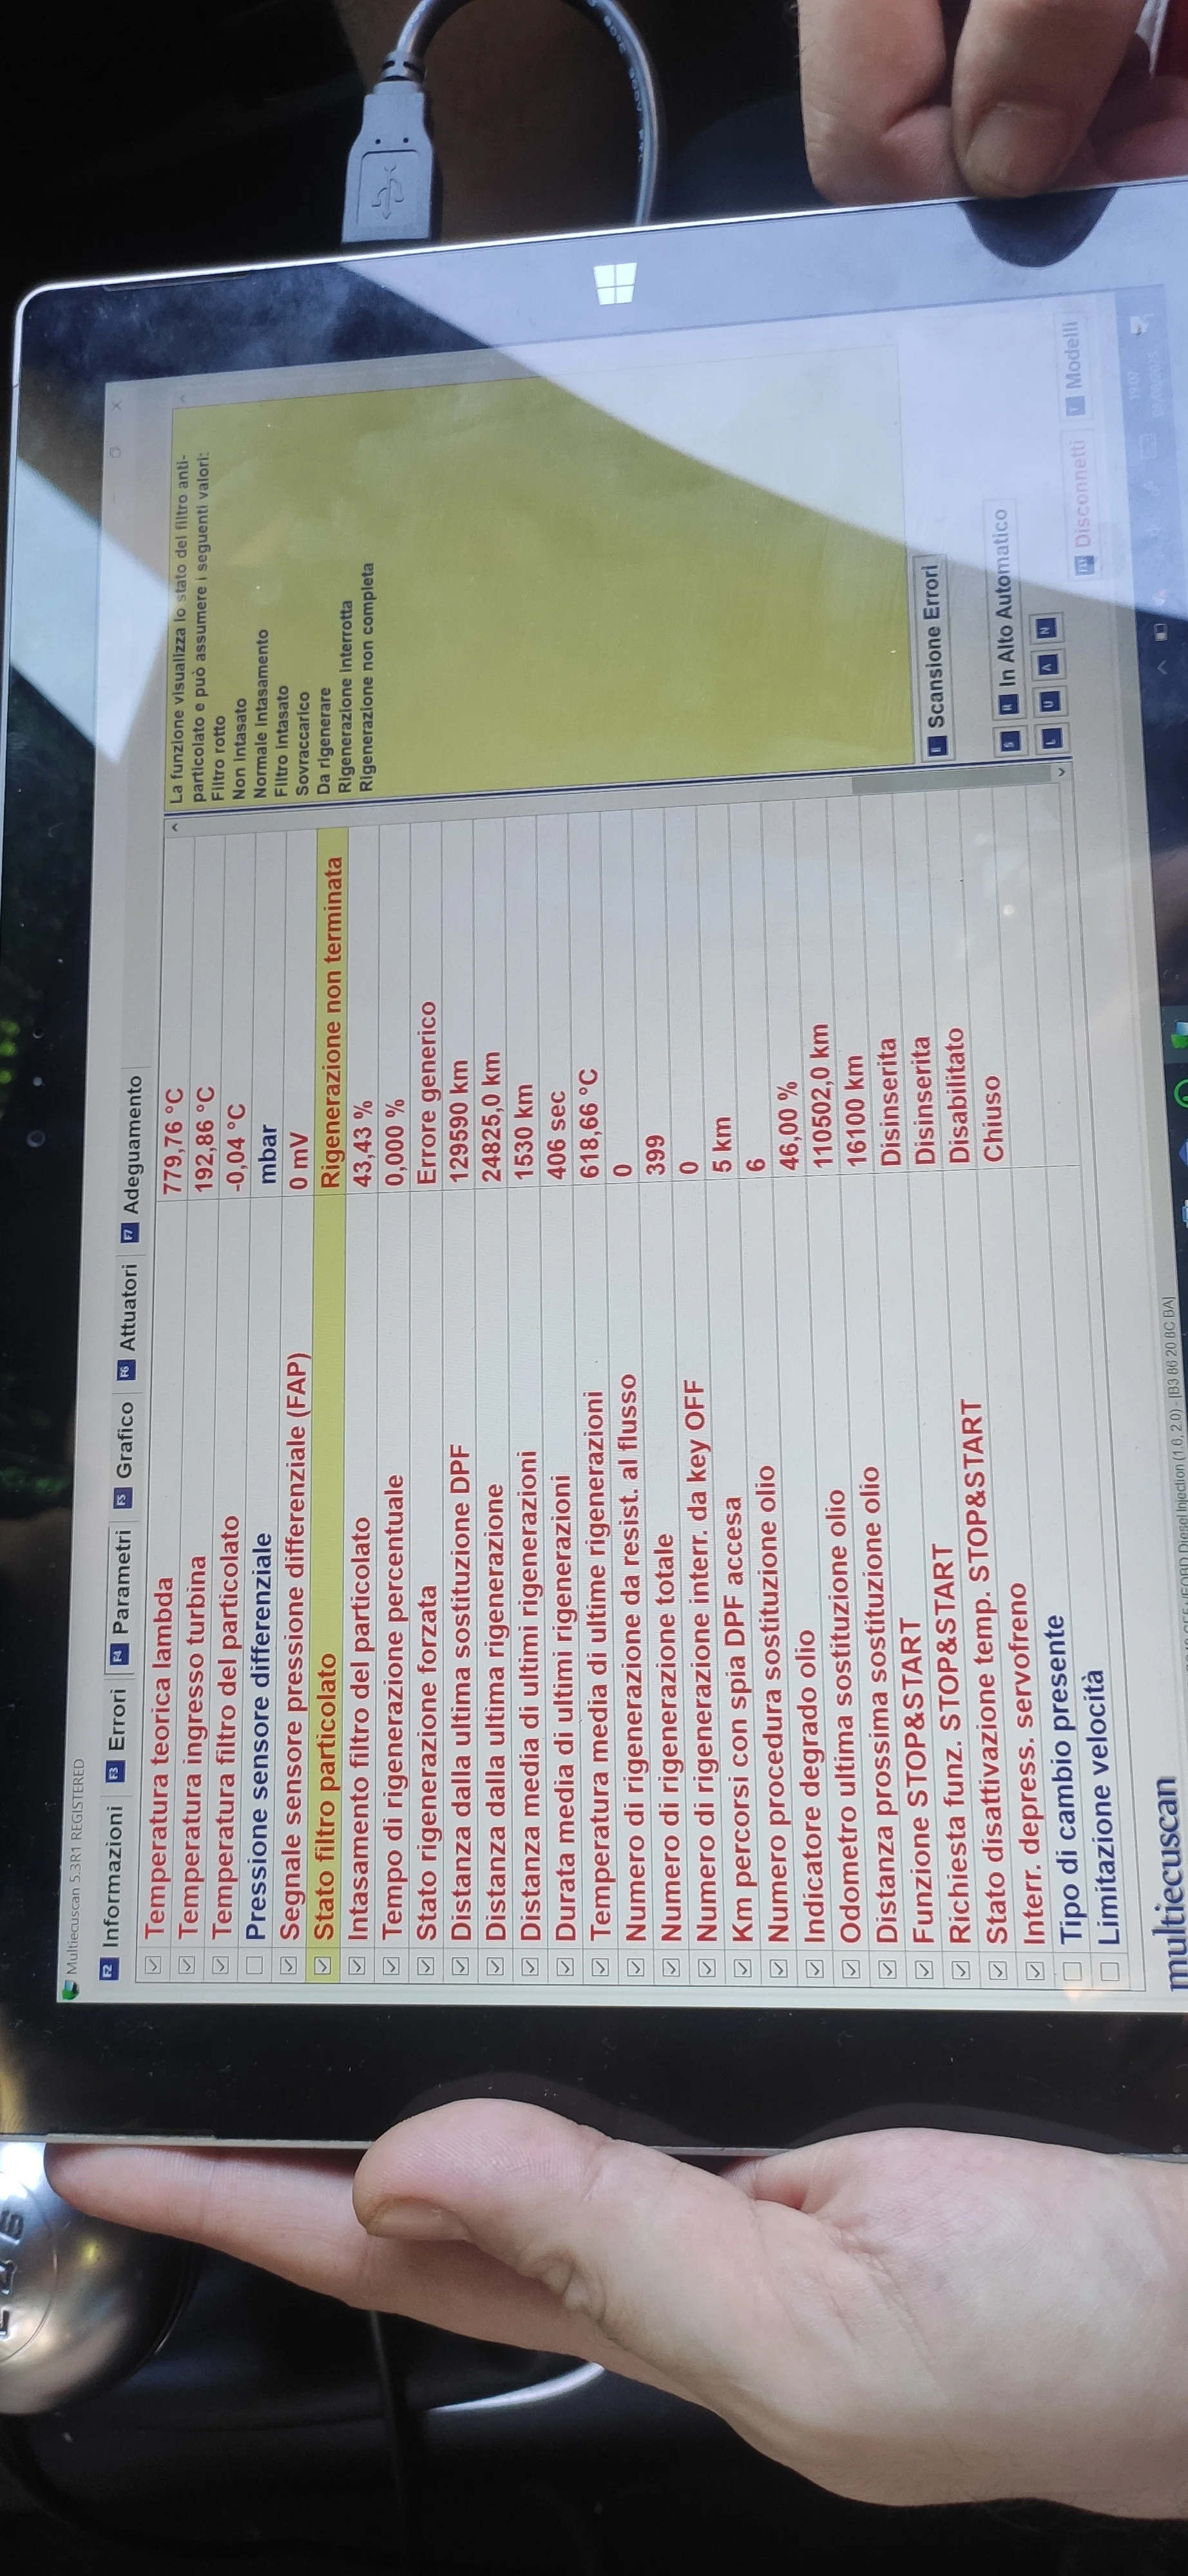 Multiecuscan 5.3R1 REGISTERED
F2 Informazioni F3 Errori F4 Parametri F5 Grafico F6 Attuatori F7 Adeguamento
Temperatura teorica lambda 779,76 °C
Temperatura ingresso turbina 192,86 °C
Temperatura filtro del particolato -0,04 °C
Pressione sensore differenziale mbar
Segnale sensore pressione differenziale (FAP) 0 mV
Stato filtro particolato Rigenerazione non terminata
Intasamento filtro del particolato 43,43 %
Tempo di rigenerazione percentuale 0,000 %
Stato rigenerazione forzata Errore generico
Distanza dalla ultima sostituzione DPF 129590 km
Distanza dalla ultima rigenerazione 24825,0 km
Distanza media di ultimi rigenerazioni 1530 km
Durata media di ultimi rigenerazioni 406 sec
Temperatura media di ultime rigenerazioni 618,66 °C
Numero di rigenerazione da resist. al flusso 0
Numero di rigenerazione totale 399
Numero di rigenerazione interr. da key OFF 0
Km percorsi con spia DPF accesa 5 km
Numero procedura sostituzione olio 6
Indicatore degrado olio 46,00 %
Odometro ultima sostituzione olio 110502,0 km
Distanza prossima sostituzione olio 16100 km
Funzione STOP&START Disinserita
Richiesta funz. STOP&START Disinserita
Stato disattivazione temp. STOP&START Disabilitato
Interr. depress. servofreno Chiuso
Tipo di cambio presente
Limitazione velocità
La funzione visualizza lo stato del filtro anti-
particolato e può assumere i seguenti valori:
Filtro rotto
Non intasato
Normale intasamento
Filtro intasato
Sovraccarico
Da rigenerare
Rigenerazione Interrotta
Rigenerazione non completa
E Scansione Errori
S R In Alto Automatico
L U A N
Disconnetti Modelli
multiecuscan
/FORD Diesel Injection (1.6, 2.0) - [B3 86 20 8C BA]
19:07
2 4 6